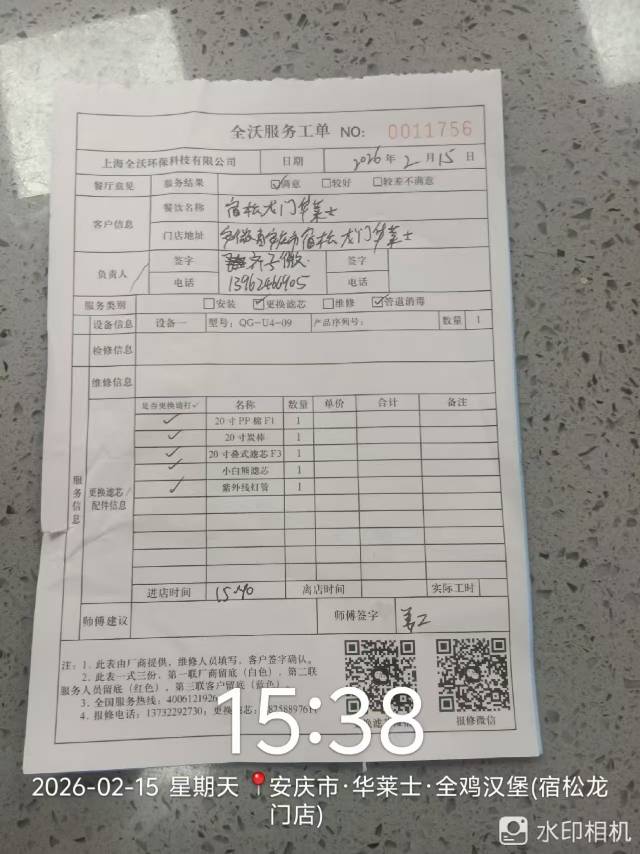 全沃服务工单 NO: 0011756
上海全沃环保科技有限公司 日期 2026年2月15日
餐厅意见 服务结果 ☑满意 □较好 □较差不满意
客户信息 餐饮名称 宿松龙门华莱士
门店地址 安徽省安庆市宿松龙门华莱士
负责人 签字 签字
电话 13962466905 电话
服务类别 □安装 ☑更换滤芯 □维修 ☑管道消毒
设备信息 设备一 型号: QG-U4-09 产品序列号: 数量 1
检修信息
维修信息
服务信息
更换滤芯/配件信息
是否更换请打✓ 名称 数量 单价 合计 备注
✓ 20寸PP棉F1 1
✓ 20寸炭棒 1
✓ 20寸叠式滤芯F3 1
✓ 小白熊滤芯 1
✓ 紫外线灯管 1
进店时间 15:40 离店时间 实际工时
师傅建议 师傅签字 姜工
注: 1. 此表由厂商提供, 维修人员填写, 客户签字确认。
2. 此表一式三份, 第一联厂商留底(白色), 第二联
服务人员留底(红色), 第三联客户留底(蓝色)
3. 全国服务热线: 4006121926
4. 报修电话: 13732292730; 更换滤芯:
报修微信
15:38
2026-02-15 星期天 安庆市·华莱士·全鸡汉堡(宿松龙
门店)
水印相机